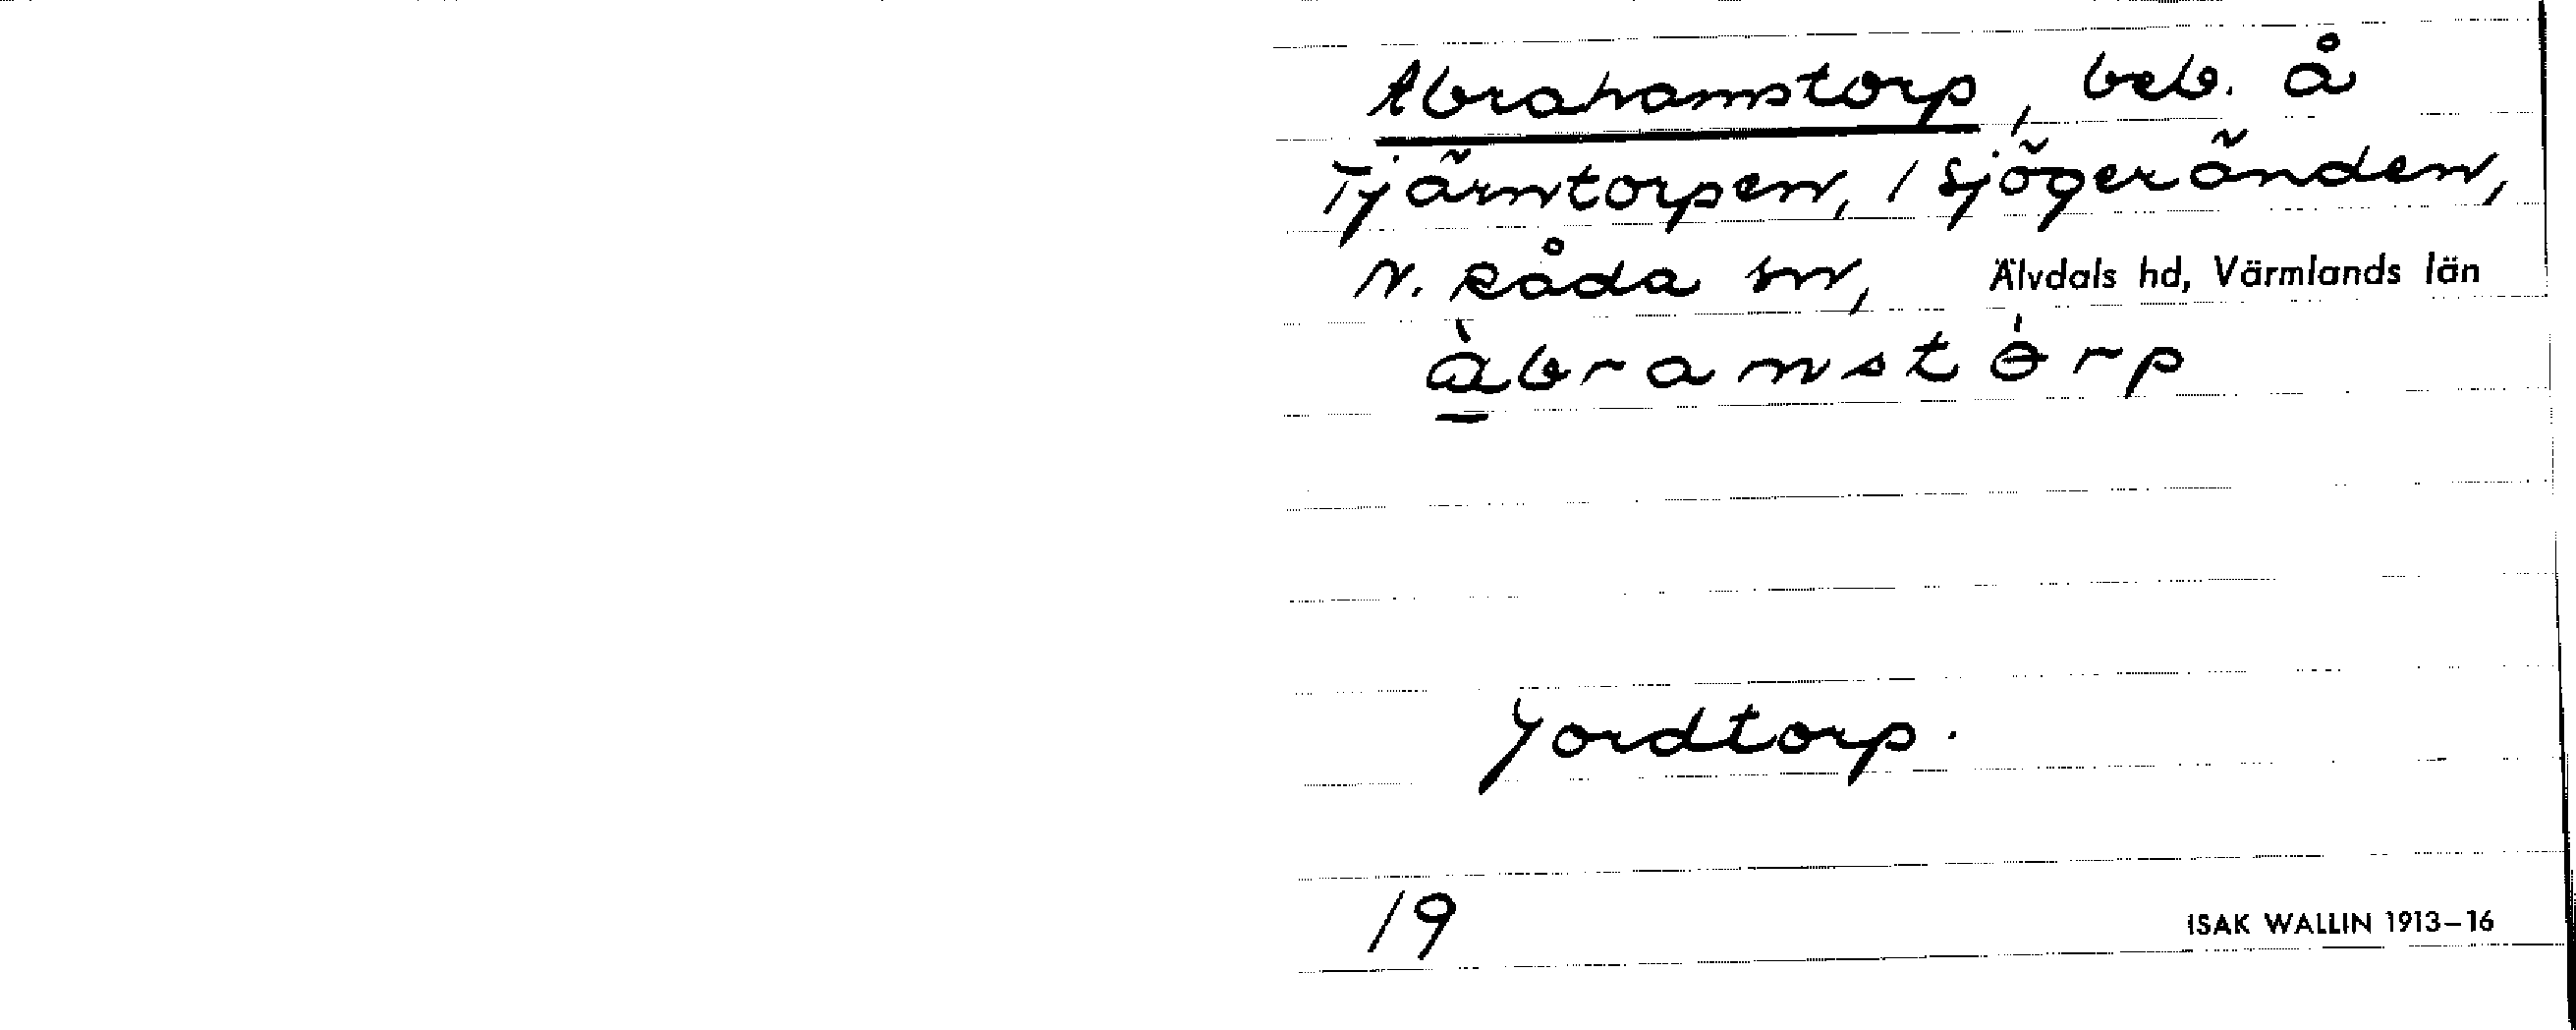 Abrahamstorp, beb. å
Tjärntorpen, / Sjögeränden,
N. Råda sn, Älvdals hd, Värmlands län
àbramstórp
Jordtorp.
19
ISAK WALLIN 1913–16